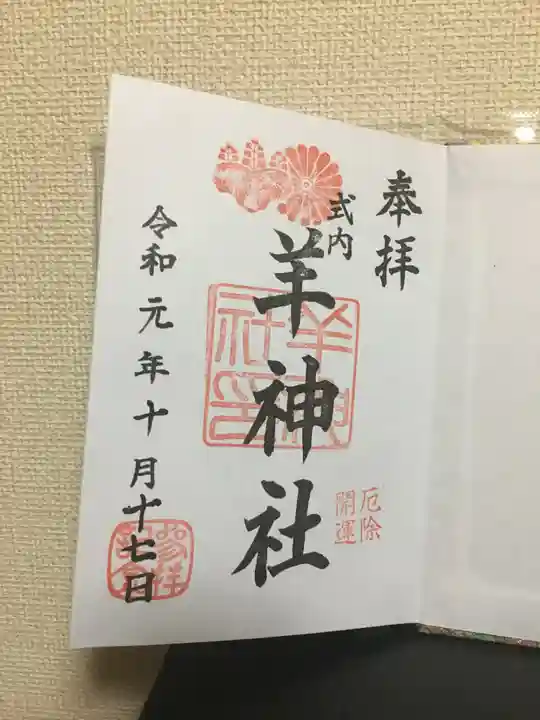 奉拝
式内
羊神社
羊神社印
厄除
開運
令和元年十月十七日